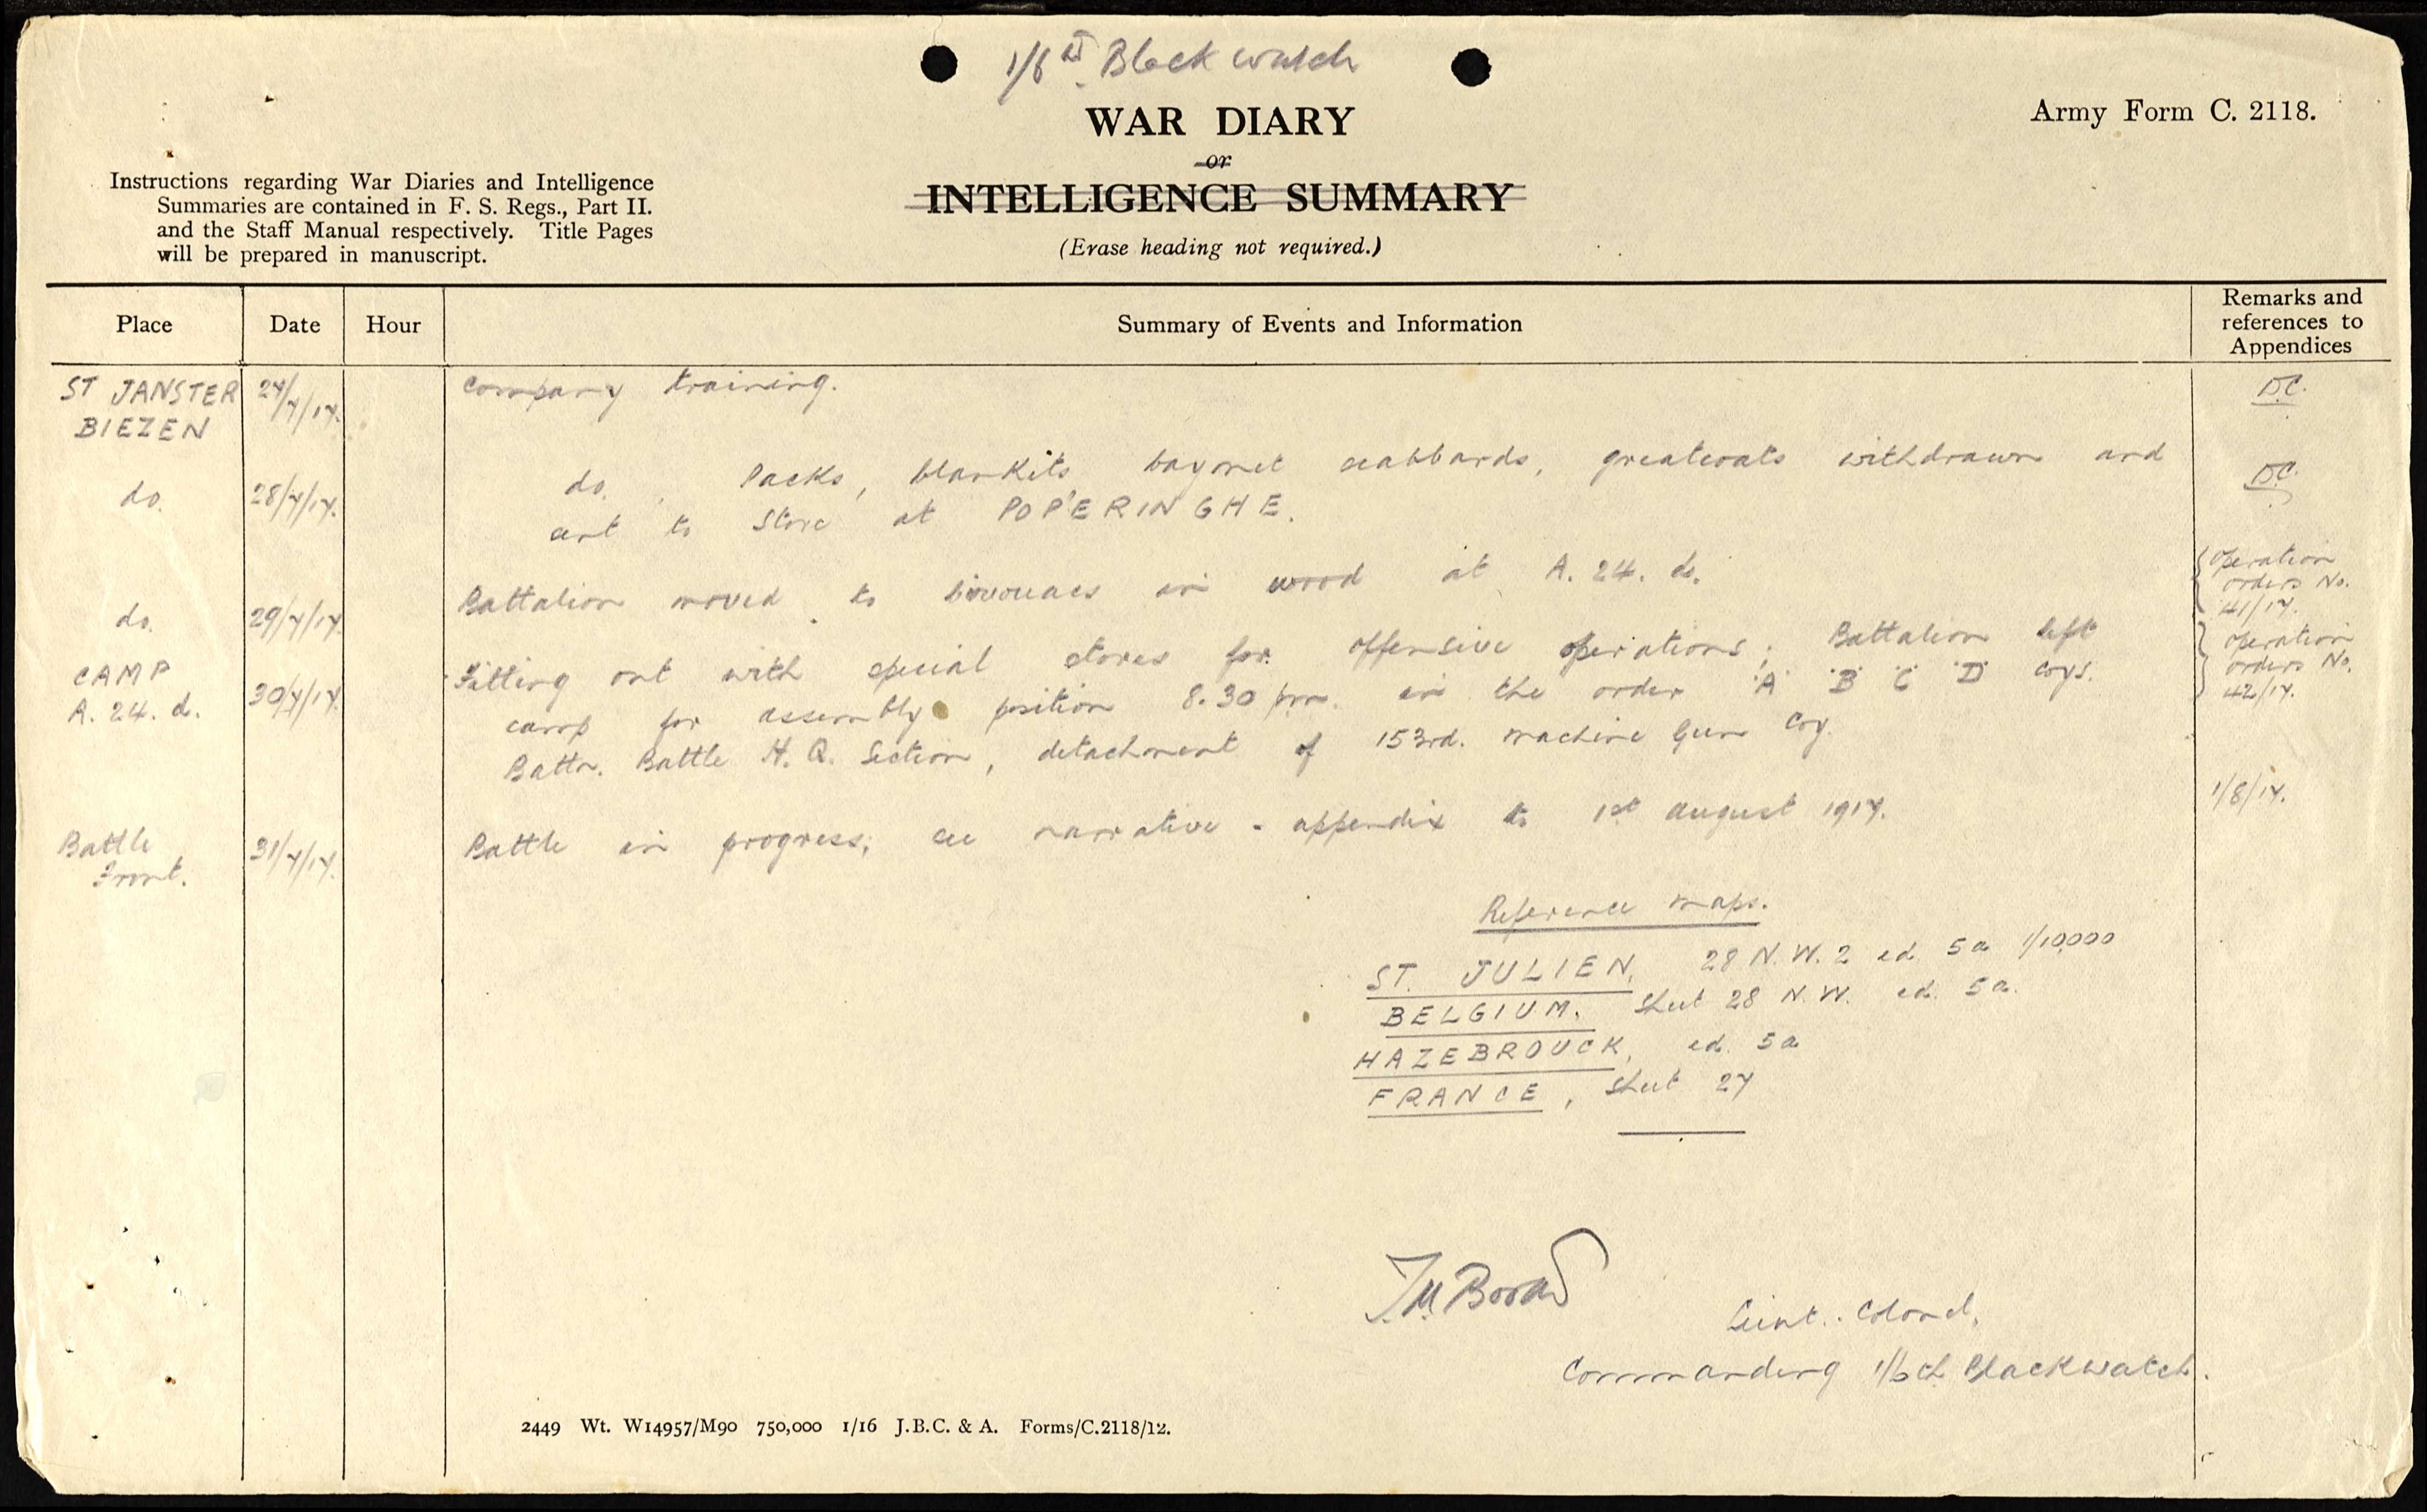 1/6th Black Watch
WAR DIARY
or
INTELLIGENCE SUMMARY
(Erase heading not required.)
Army Form C. 2118.
Instructions regarding War Diaries and Intelligence
Summaries are contained in F. S. Regs., Part II.
and the Staff Manual respectively. Title Pages
will be prepared in manuscript.
Place
Date
Hour
Summary of Events and Information
Remarks and
references to
Appendices
ST JANSTER
BIEZEN
27/7/17.
Company training.
D.C.
do.
28/7/17.
do. Packs, blankets bayonet scabbards, greatcoats withdrawn and
sent to store at POPERINGHE.
D.C.
do.
29/7/17.
Battalion moved to bivouacs in wood at A. 24. d.
Operation
orders No.
41/17.
CAMP
A. 24. d.
30/7/17.
Fitting out with special stores for offensive operations; Battalion left
camp for assembly position 8.30 pm. in the order 'A' 'B' 'C' 'D' Coys.
Battn. Battle H.Q. Section, detachment of 153rd. Machine Gun Coy.
Operation
orders No.
42/17.
Battle
Front.
31/7/17.
Battle in progress; see narrative - appendix to 1st August 1917.
1/8/17.
Reference maps.
ST. JULIEN, 28 N.W. 2 ed. 5a 1/10,000
BELGIUM. Sheet 28 N.W. ed. 5a.
HAZEBROUCK, ed. 5a
FRANCE, Sheet 27
Lieut. Colonel,
Commanding 1/6th Black Watch.
2449 Wt. W14957/M90 750,000 1/16 J.B.C. & A. Forms/C.2118/12.